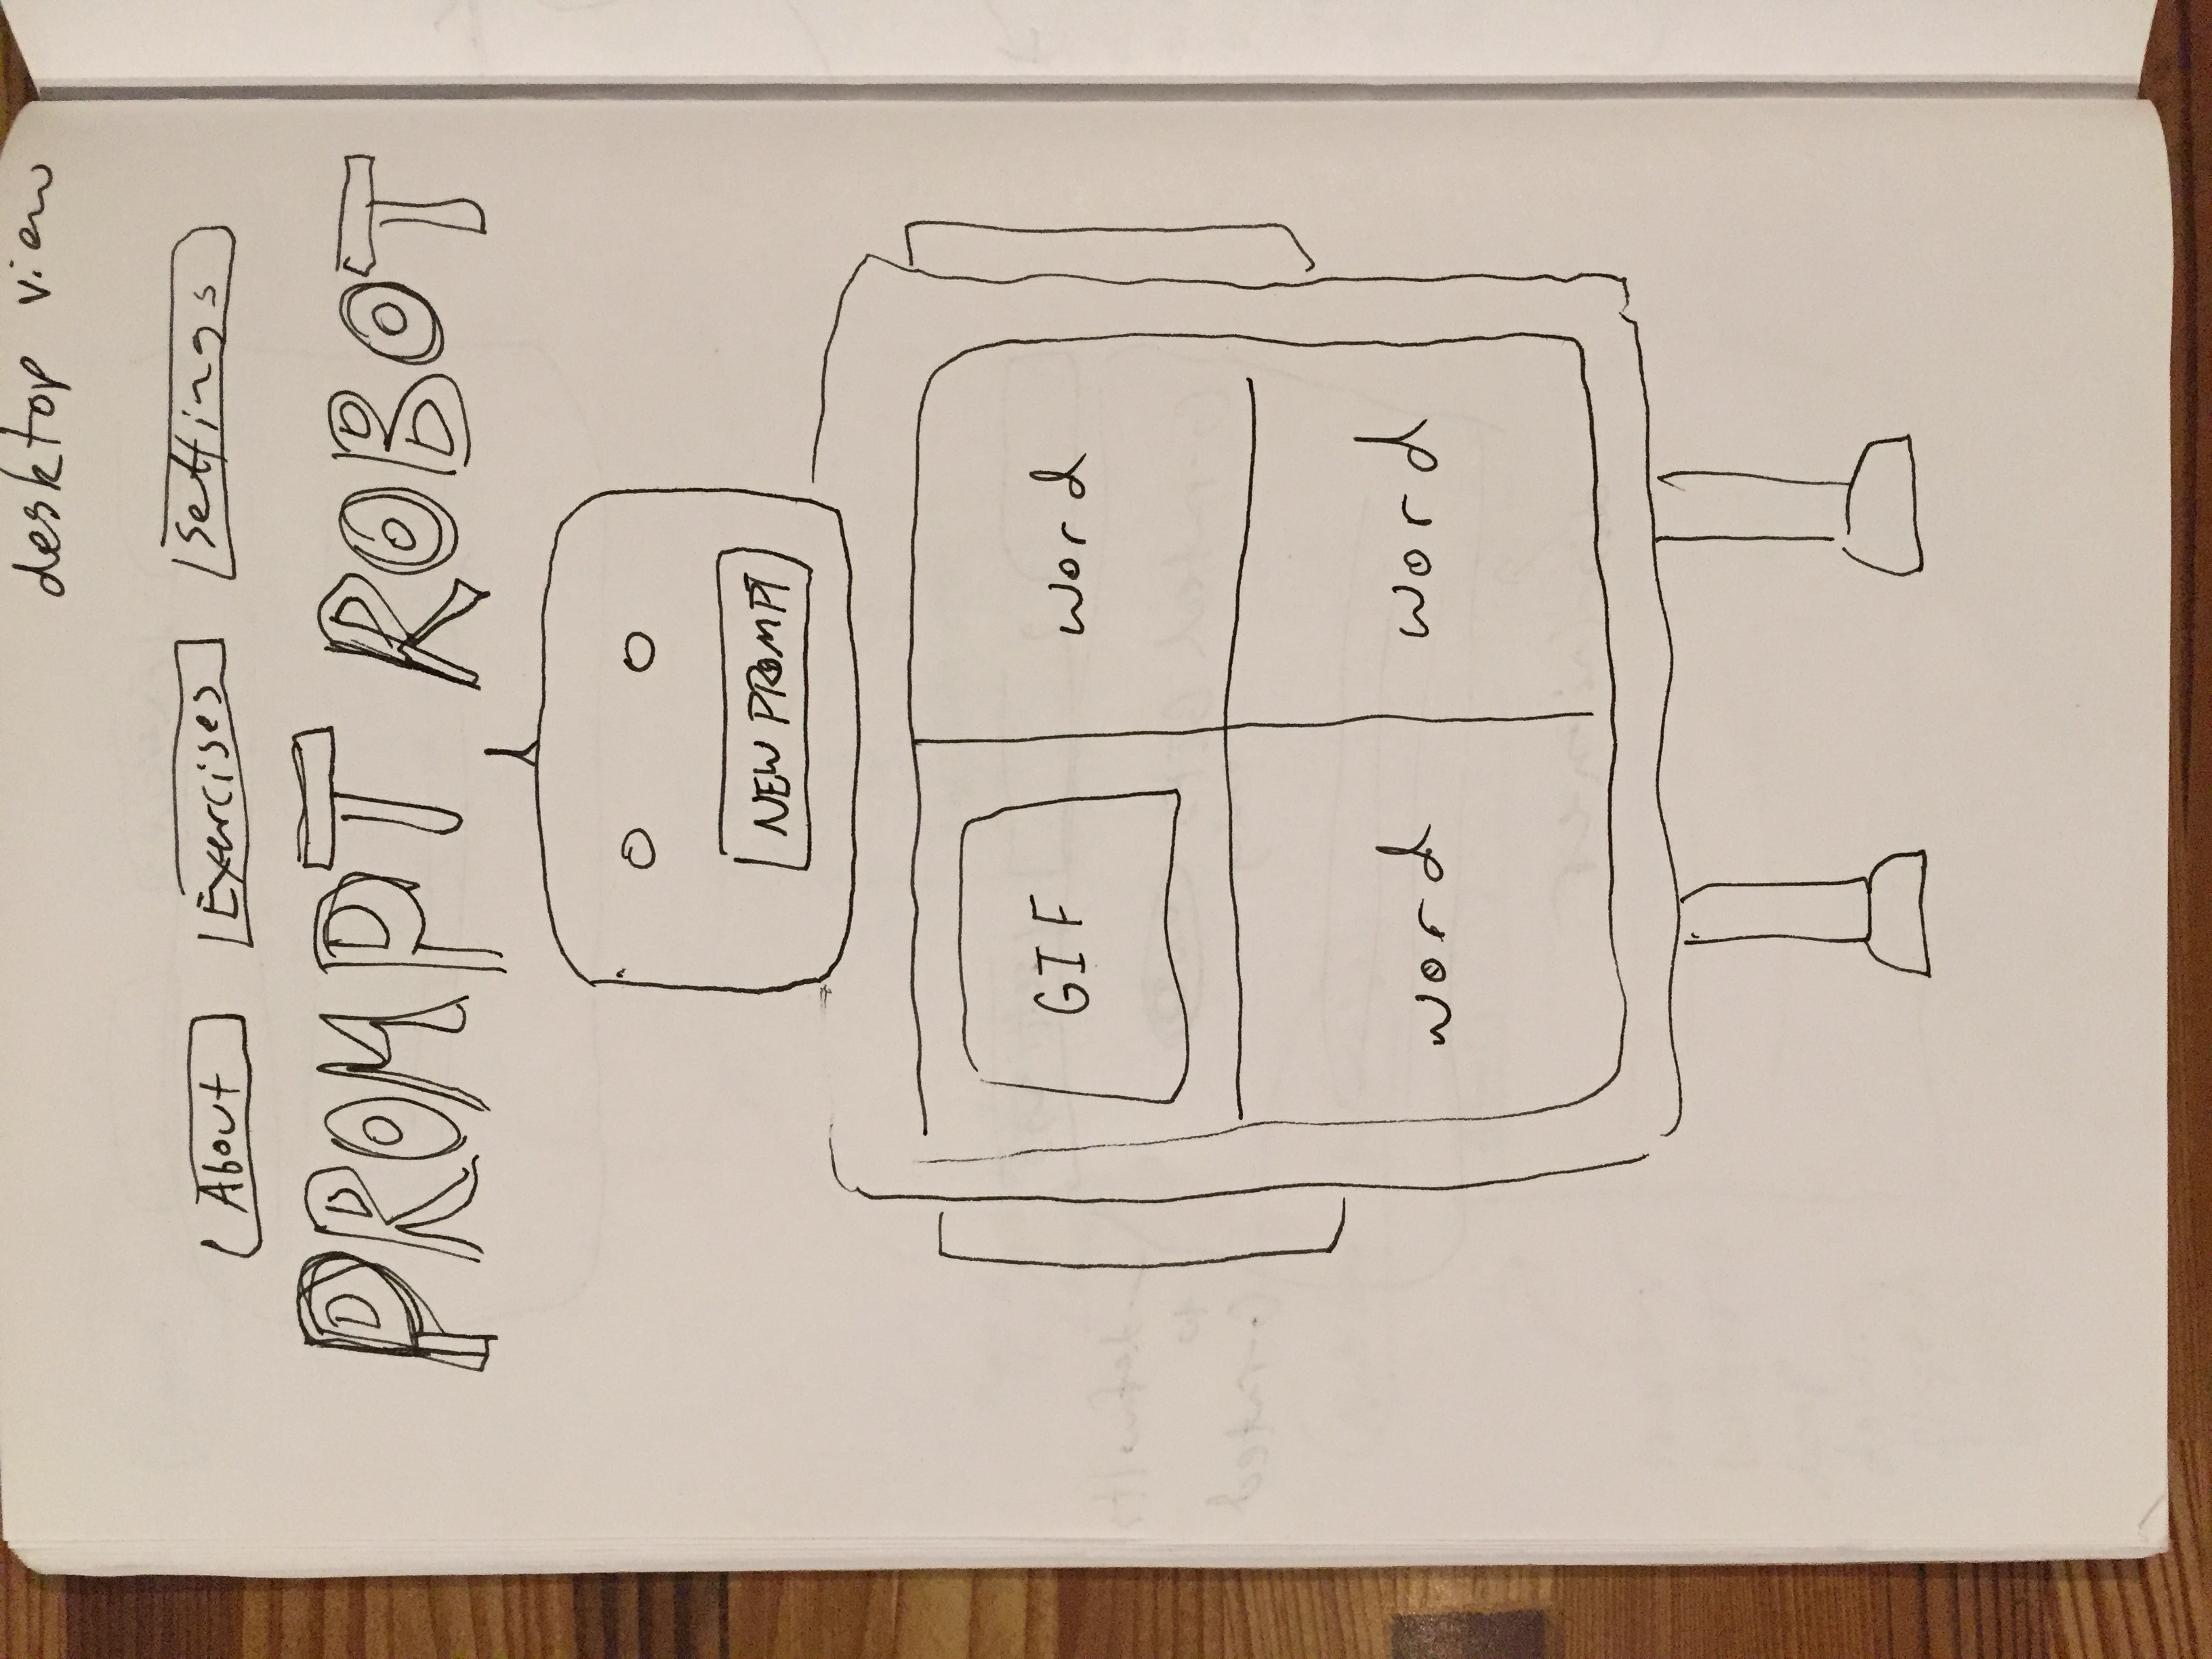 desktop view
About Exercises Settings
PROMPT ROBOT
NEW PROMPT
GIF word
word word